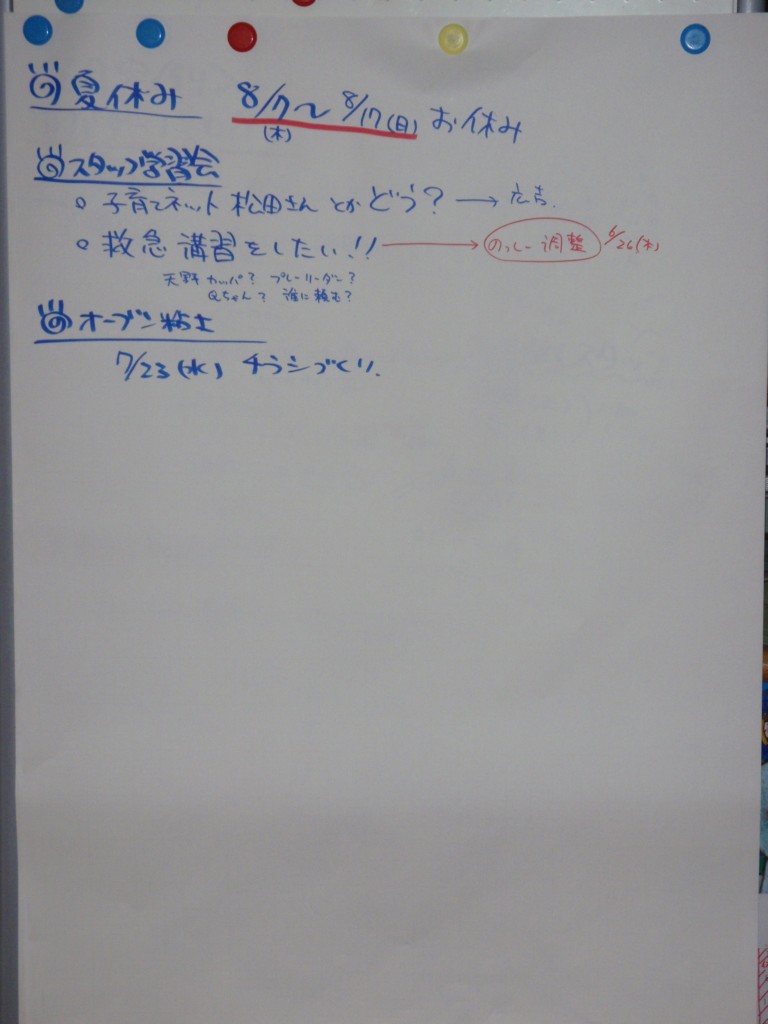 の 夏休み 8/7〜8/17(日) お休み
(木)
の スタッフ学習会
○ 子育てネット 松田さん とか どう？ →
○ 救急講習をしたい!! → のっしー調整 6/26(木)
天野カッパ？ プレーリーダー？
Qちゃん？ 誰に頼む？
の オーブン粘土
7/23(水) チラシづくり.